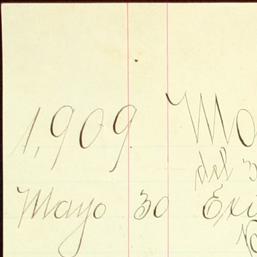 1,909. Mo
del 3
Mayo 30 Exi